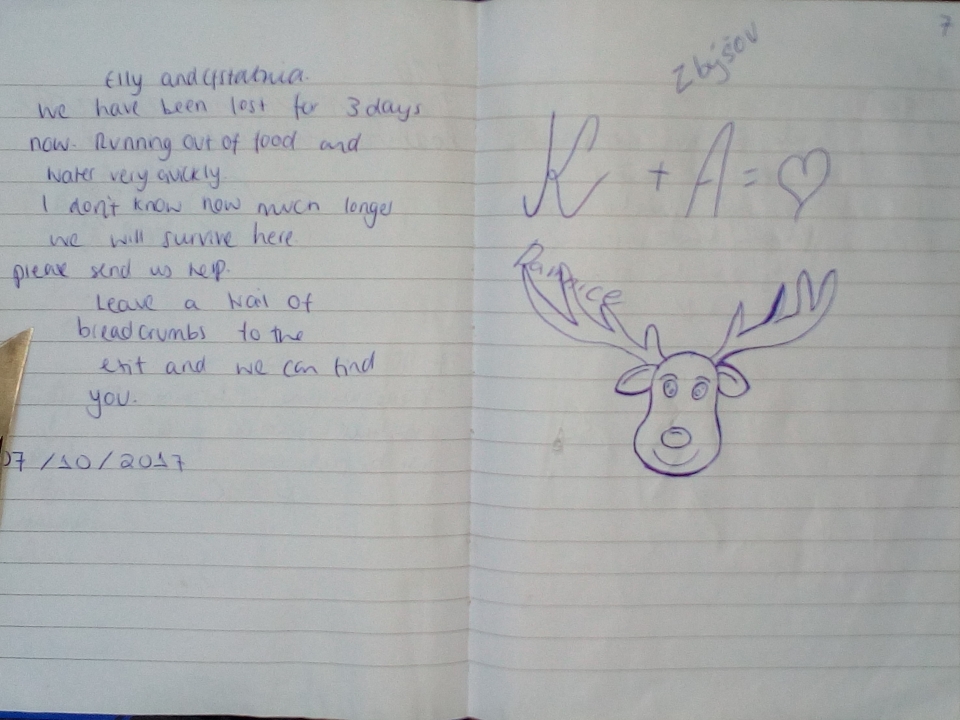 Elly and
we have been lost for 3 days
now. Running out of food and
water very quickly.
I don't know how much longer
we will survive here.
please send us help.
Leave a trail of
breadcrumbs to the
exit and we can find
you.
07/10/2017
7
Zbýšov
K + A = ♡